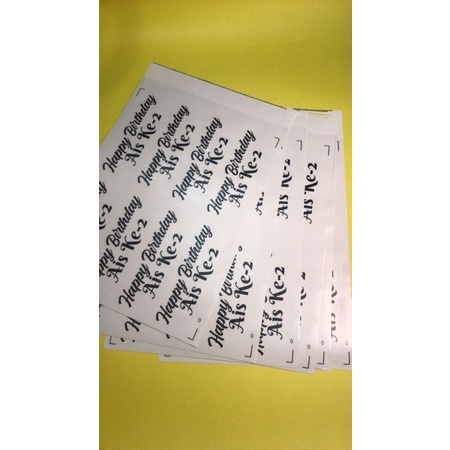 Happy Birthday
Ais Ke-2
Happy Birthday
Ais Ke-2
Happy Birthday
Ais Ke-2
Happy Birthday
Ais Ke-2
Ais Ke-2
Ais Ke-2
Happy Birthday
Ais Ke-2
Happy Birthday
Ais Ke-2
Happy Birthday
Ais Ke-2
Ais Ke-2